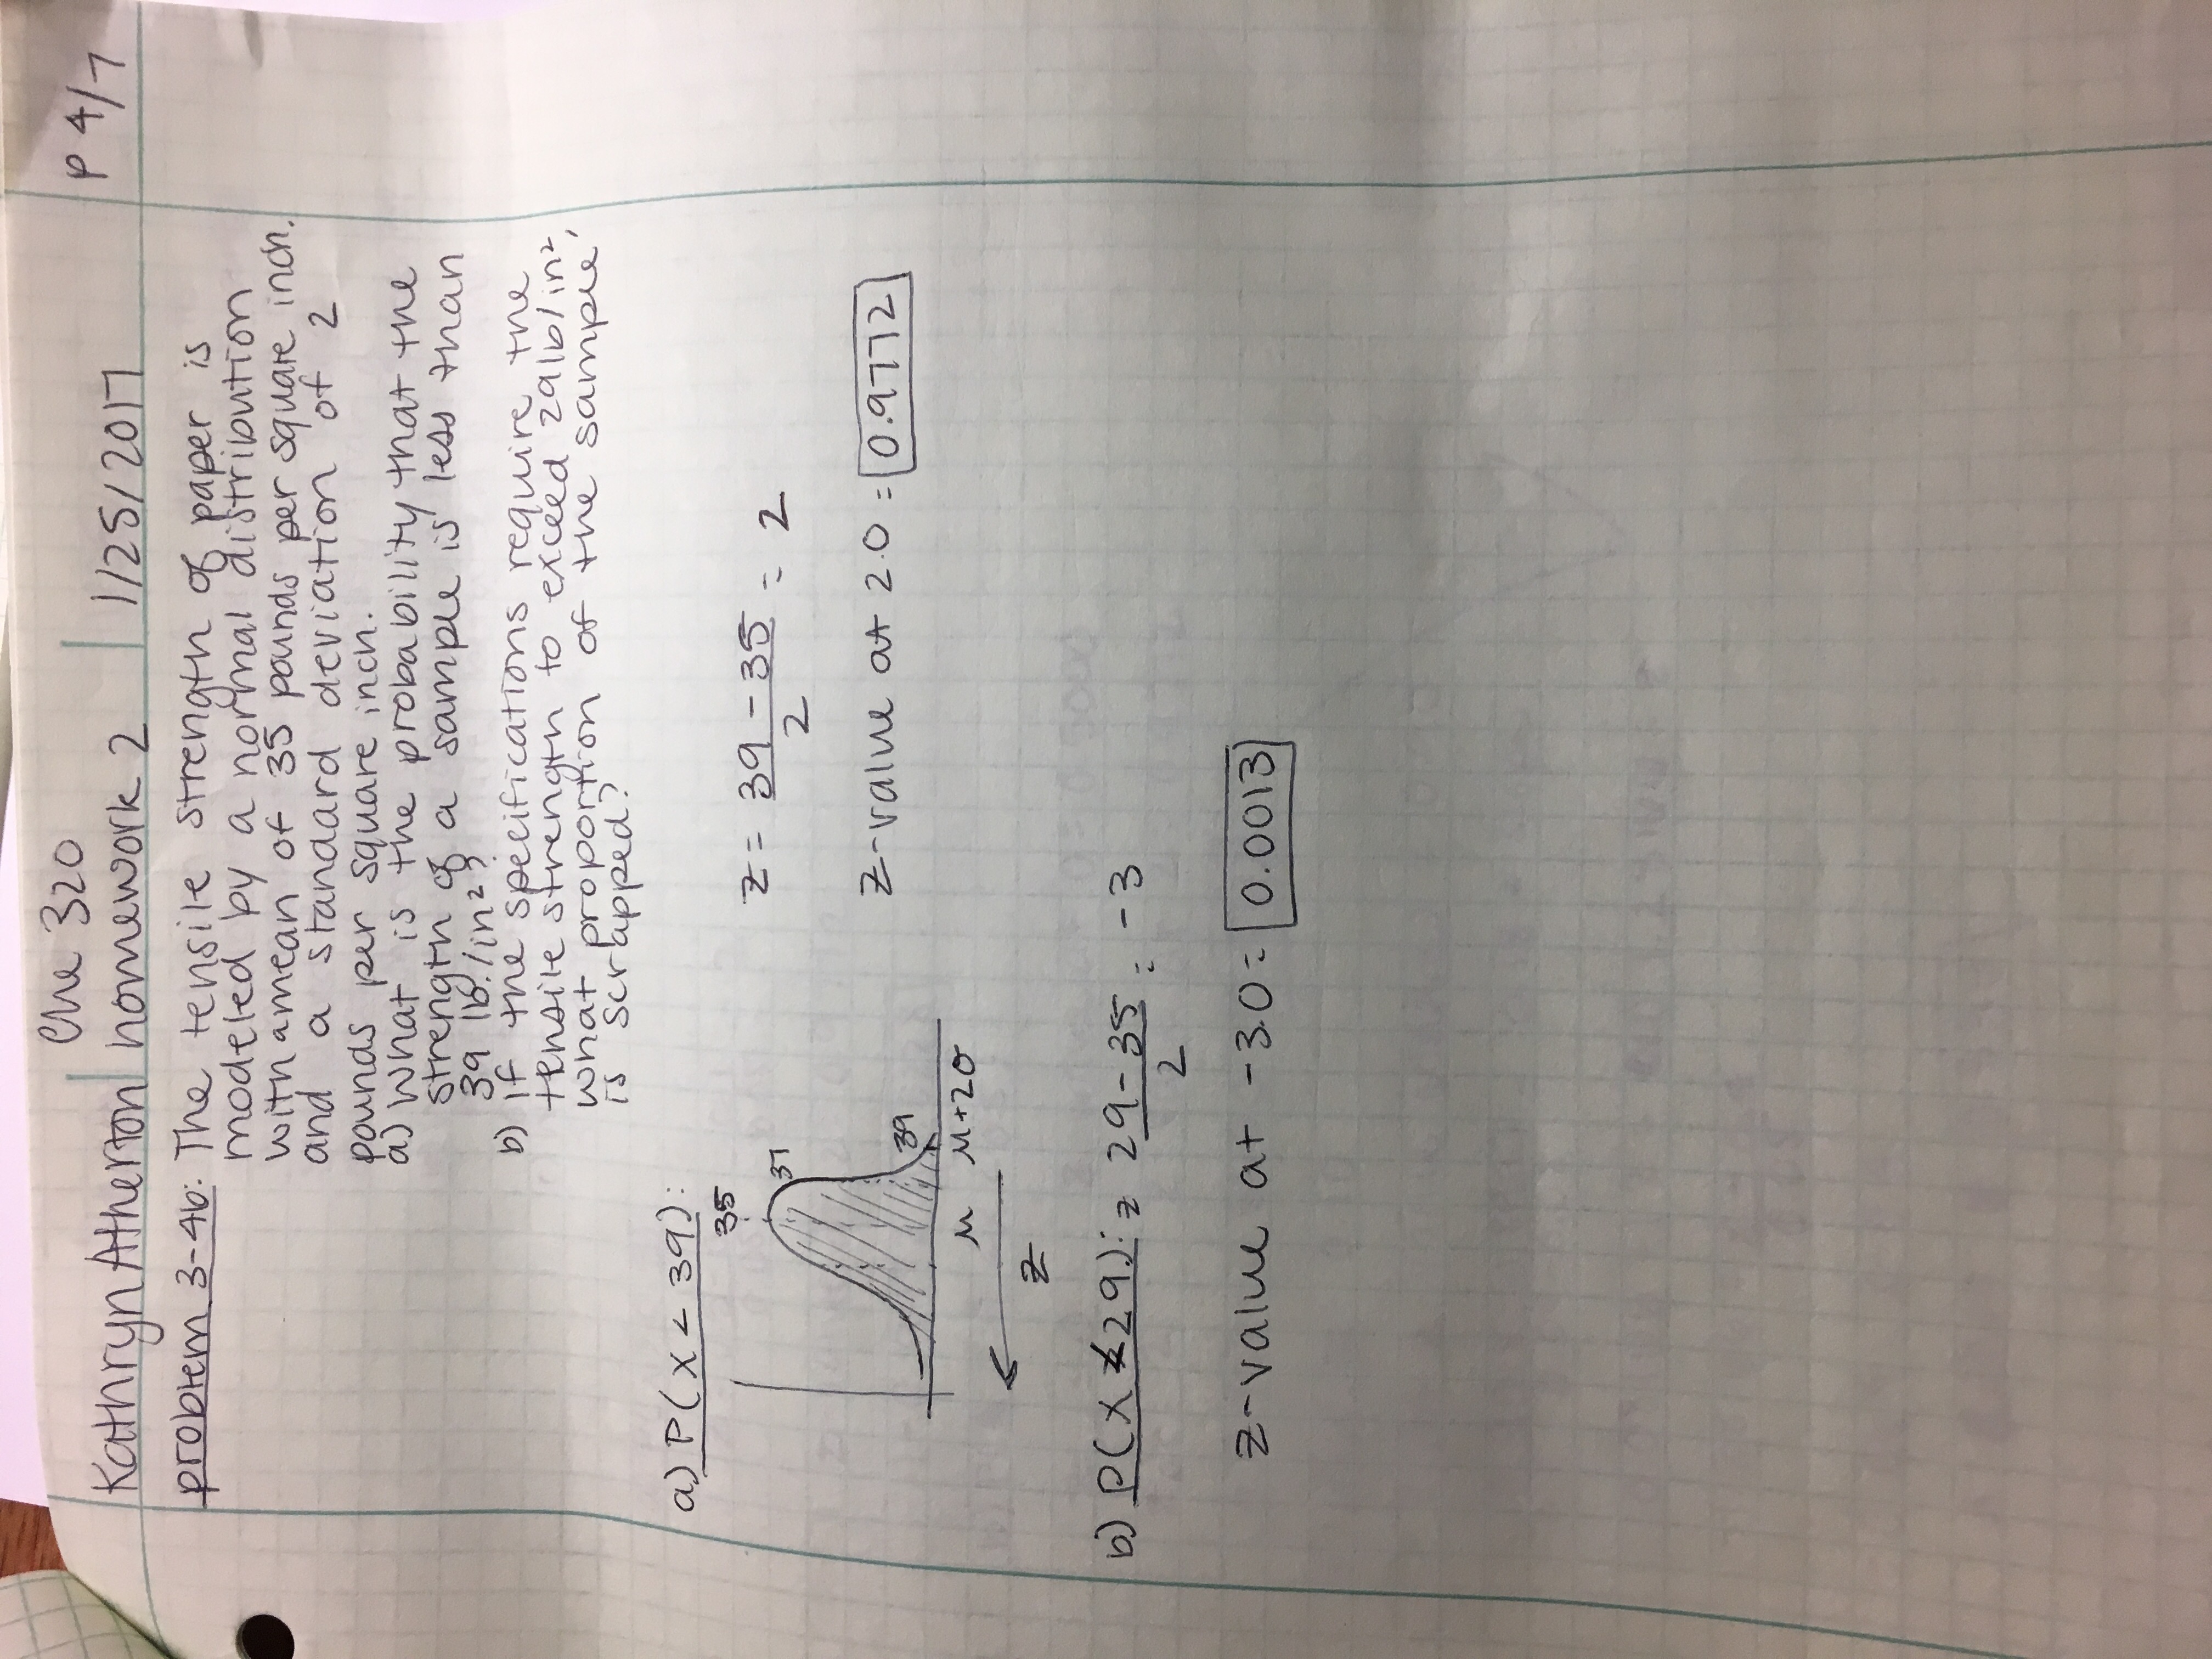 Che 320
Kathryn Atherton homework 2 1/25/2017 P 4/7
problem 3-46: The tensile strength of paper is
modeled by a normal distribution
with a mean of 35 pounds per square inch.
and a standard deviation of 2
pounds per square inch.
a) What is the probability that the
strength of a sample is less than
39 lb./in²?
b) if the specifications require the
tensile strength to exceed 29 lb/in²,
what proportion of the sample
is scrapped?
a) P(X < 39):
35
37
39
μ μ+2σ
z
z = (39 - 35)/2 = 2
z-value at 2.0 = 0.9772
b) P(X < 29): z (29-35)/2 = -3
z-value at -3.0 = 0.0013